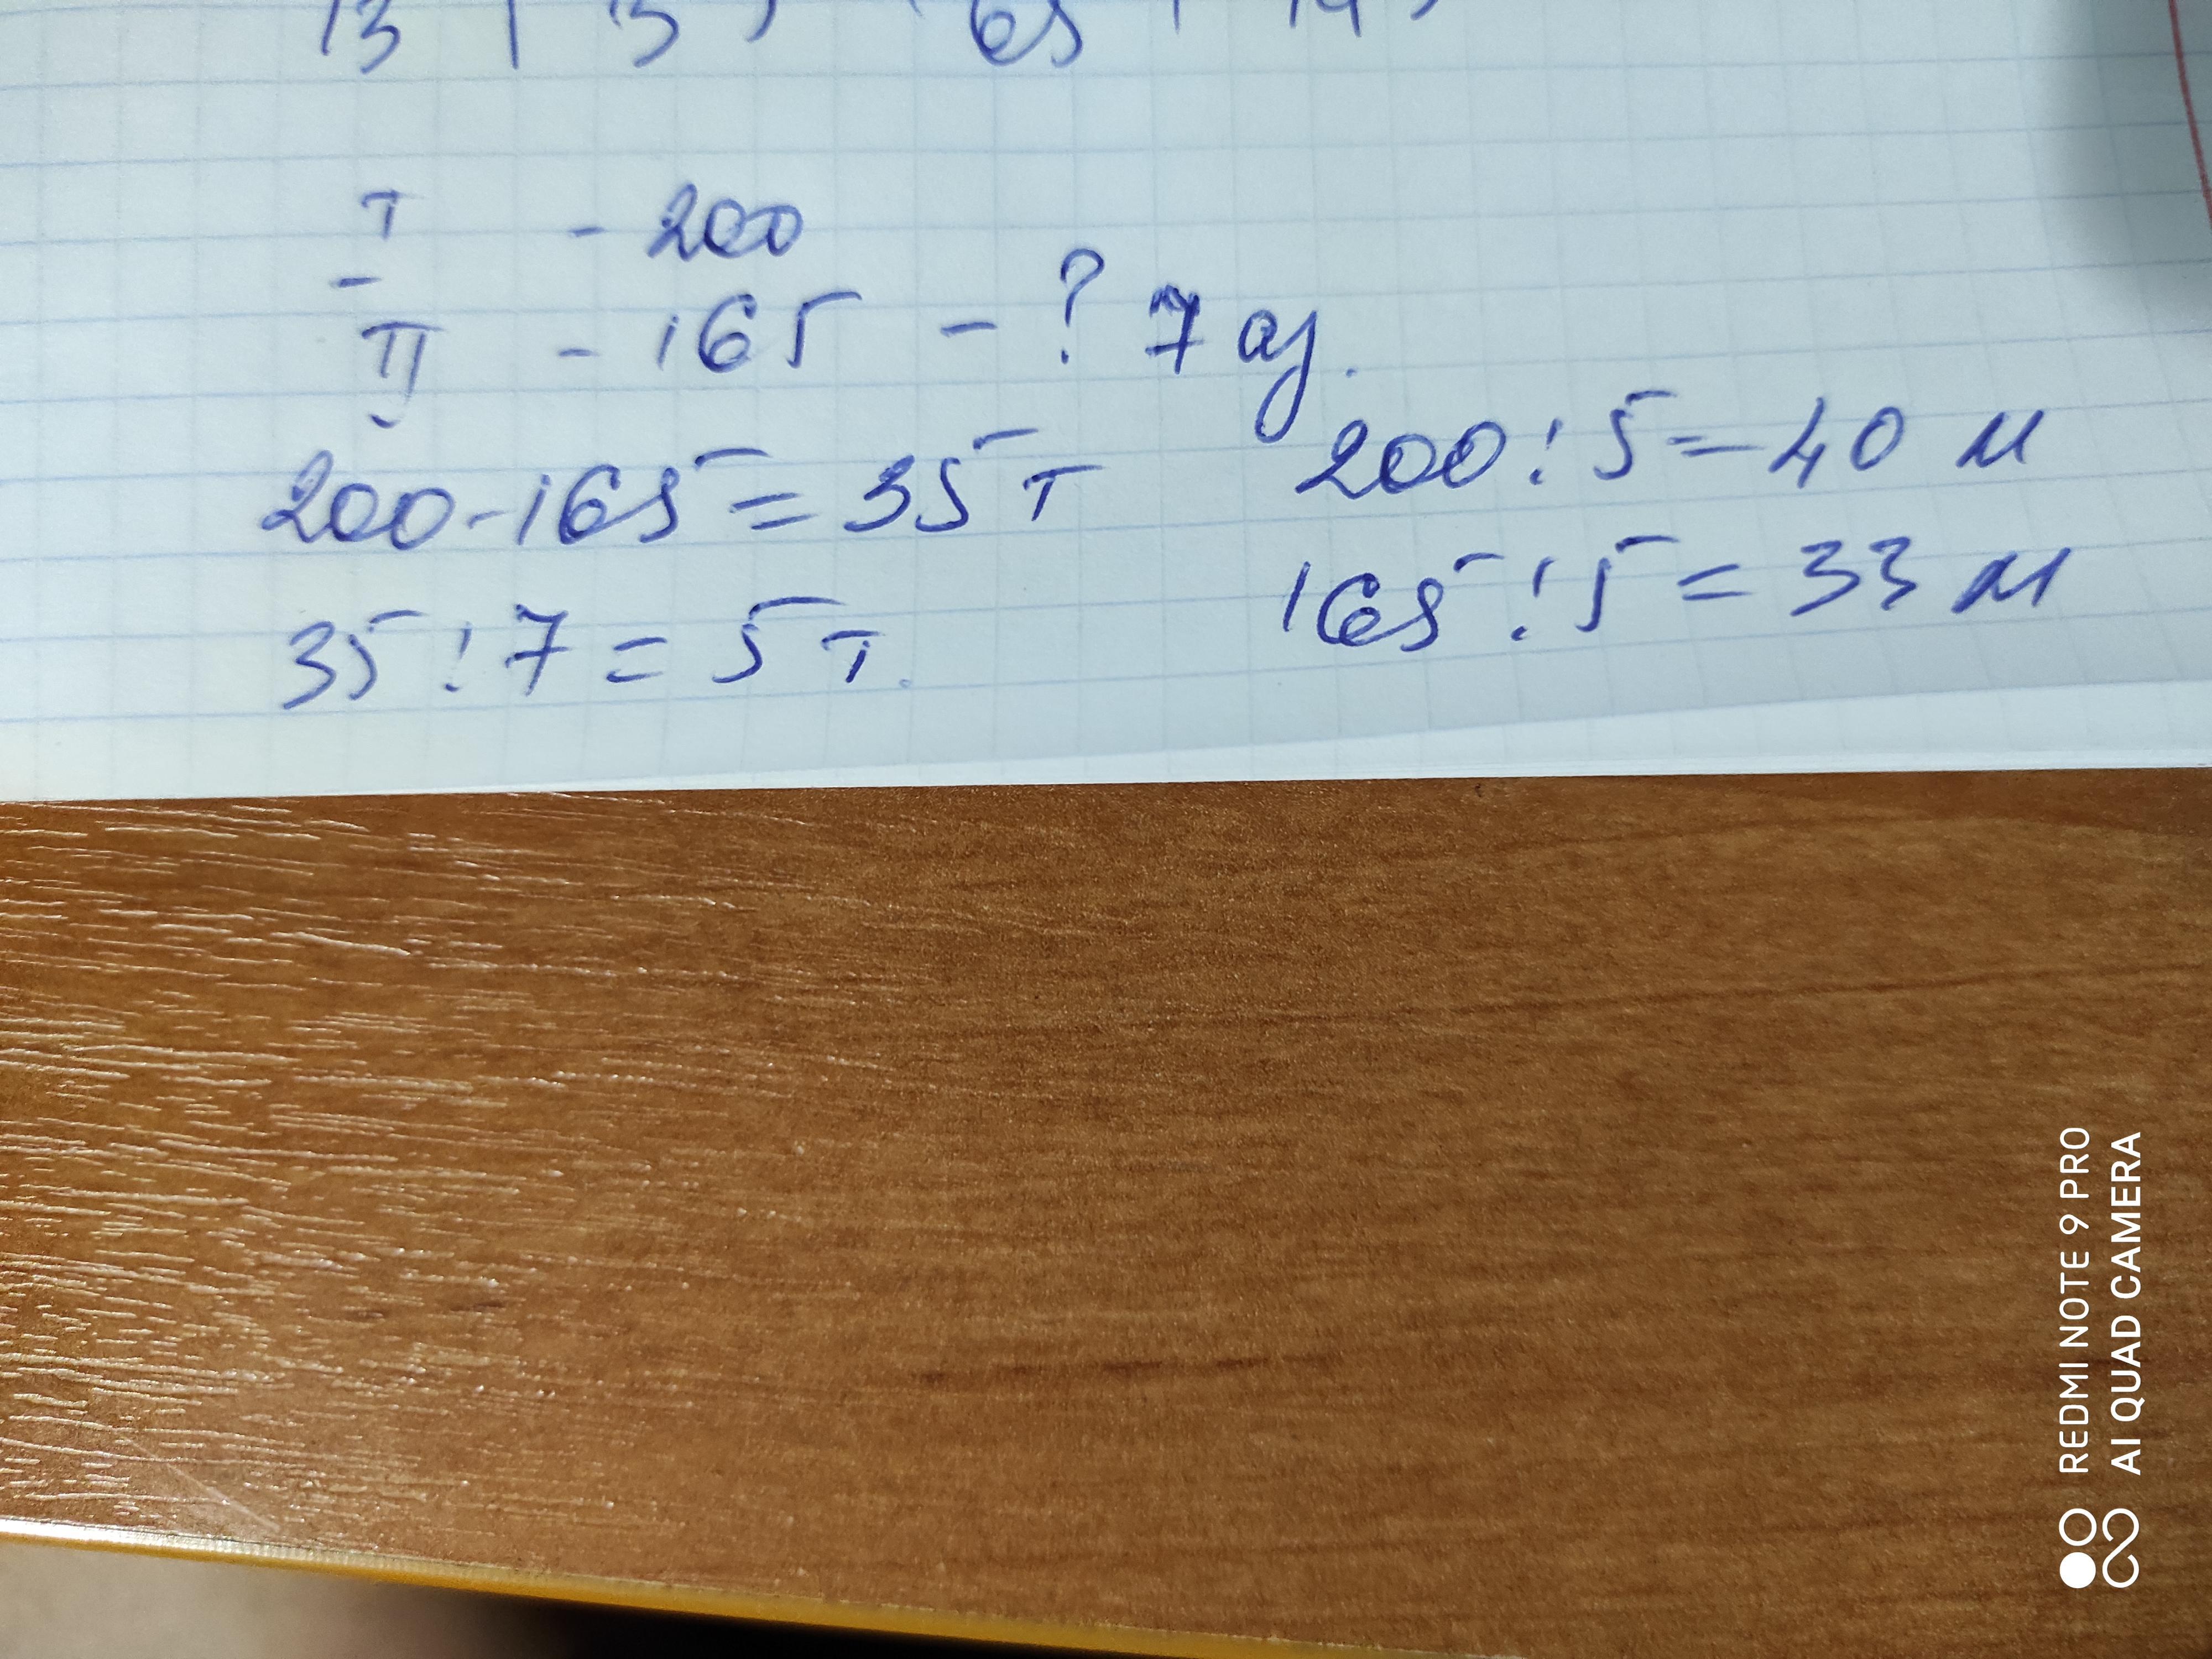 I - 200
II - 165 - ? 7 аз.
200-165=35 т
35:7=5 т.
200:5=40 м
165:5=33 м
REDMI NOTE 9 PRO
AI QUAD CAMERA